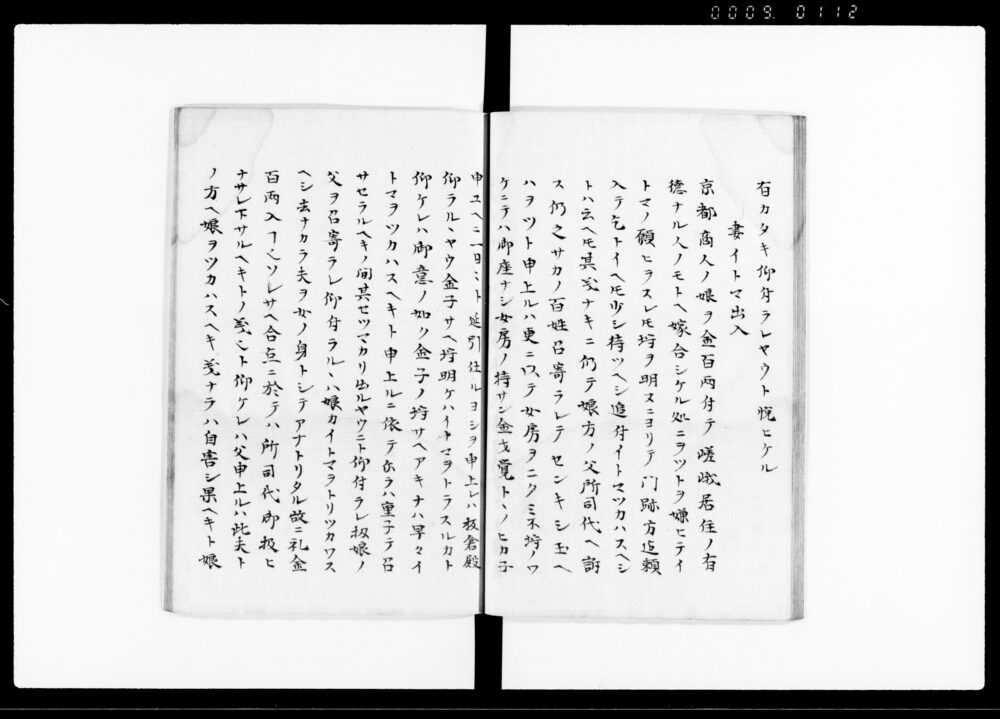 0009. 0112
有カタキ仰付ラレヤウト悦ヒケル
妻イトマ出入
京都商人ノ娘ヲ金百両付テ嵯峨居住ノ有
徳ナル人ノモトヘ嫁合シケル処ニヲツトヲ嫌ヒテイ
トマノ願ヒヲスレ𪜈埒ヲ明スニヨリテ門跡方迄頼
入テ乞トイヘ𪜈少シ待ツヘシ追付イトマツカハスヘシ
トハ云ヘ𪜈其義ナキニ仍テ娘方ノ父所司代ヘ訴
ス仍之サカノ百姓召寄ラレテセンキシ玉ヘ
ハヲツト申上ルハ更ニ以テ女房ヲニクミ不埒ノワ
ケニテハ御座ナシ女房ノ持サン金才覚トヽノヒカ子
申ユヘニ一日ミト延引仕ルヨシヲ申上レハ板倉殿
仰ラルヽヤウ金子サヘ埒明ケハイトマヲトラスルカト
仰ケレハ御意ノ如ク金子ノ埒サヘアキナハ早々イ
トマヲツカハスヘキト申上ルニ依テ尓ラハ重子テ召
サセラルヘキノ間其セツマカリ出ルヤウニト仰付ラレ扨娘ノ
父ヲ召寄ラレ仰付ラルヽハ娘カイトマヲトリツカワス
ヘシ去ナカラ夫ヲ女ノ身トシテアナトリタル故ニ礼金
百両入ヿ也ソレサヘ合点ニ於テハ所司代御扱ヒ
ナサレ下サルヘキトノ義也ト仰ケレハ父申上ルハ此夫ト
ノ方ヘ娘ヲツカハスヘキ義ナラハ自害シ果ヘキト娘